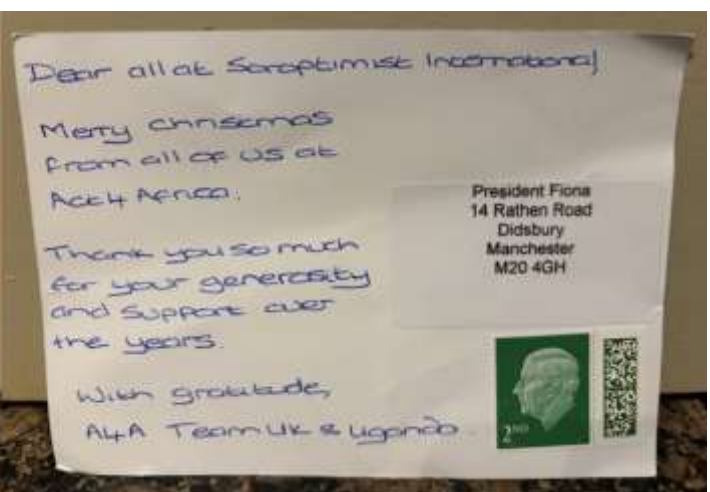 Dear all at Soroptimist International
Merry Christmas
from all of us at
Act4 Africa.
Thank you so much
for your generosity
and support over
the years.
With gratitude,
A4A Team UK & Uganda
President Fiona
14 Rathen Road
Didsbury
Manchester
M20 4GH
2ND